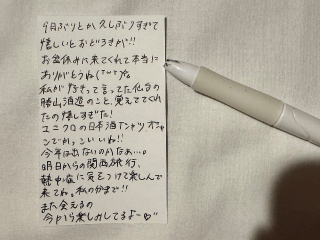 9月ぶりとか久しぶりすぎて
嬉しいとおどろきが!!
お盆休みに来てくれて本当に
ありがとうね(^o^)
私が好きって言ってた仙台の
勝山酒造のこと、覚えててくれ
たの嬉しすぎた!
ユニクロの日本酒Tシャツ オシャ
ンでかっこいいね!!
今年は出ないのかなぁ…。
明日からの関西旅行、
熱中症に気をつけて楽しんで
来てね。私の分まで!!
また会えるの
今から楽しみしてるよー♡